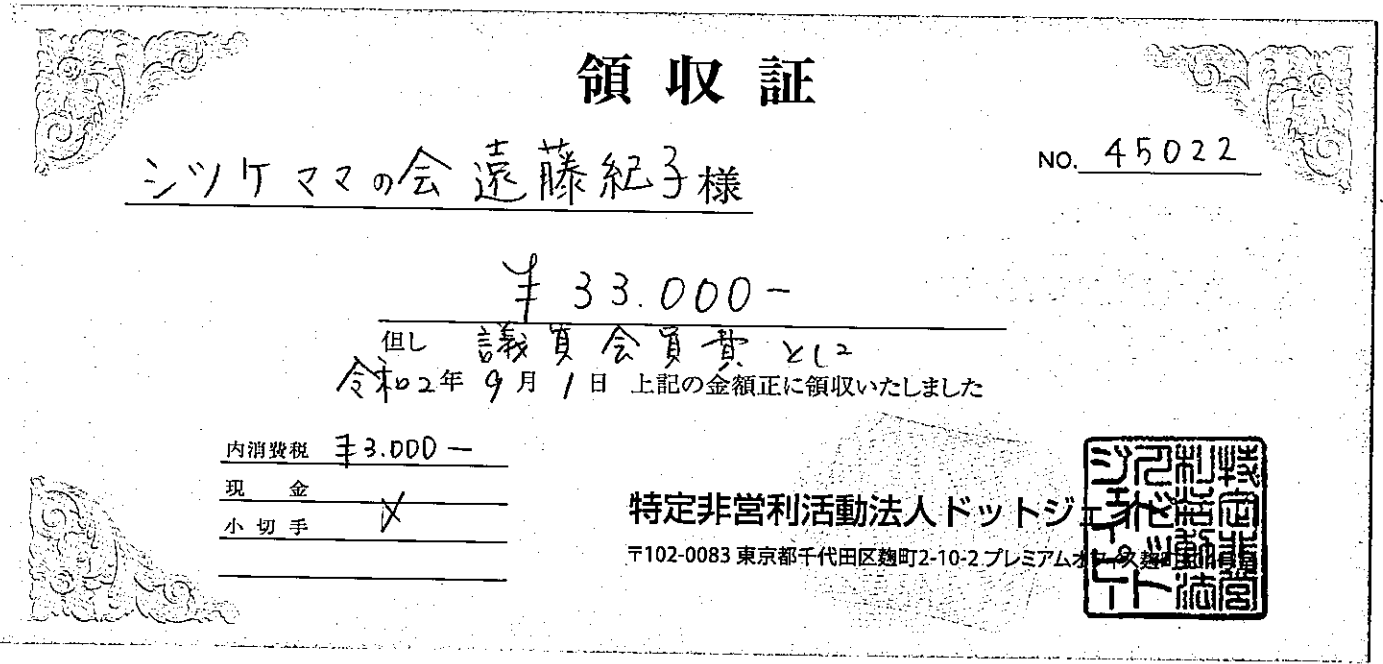 領収証
シツケママの会 遠藤紀子様
NO. 45022
¥33.000-
但し 議員会員費として
令和2年9月1日 上記の金額正に領収いたしました
内消費税 ¥3.000-
現 金
小切手
特定非営利活動法人ドットジェイピー
〒102-0083 東京都千代田区麹町2-10-2 プレミアムオフィス麹町
特定非営利活動法人ドットジェイピー